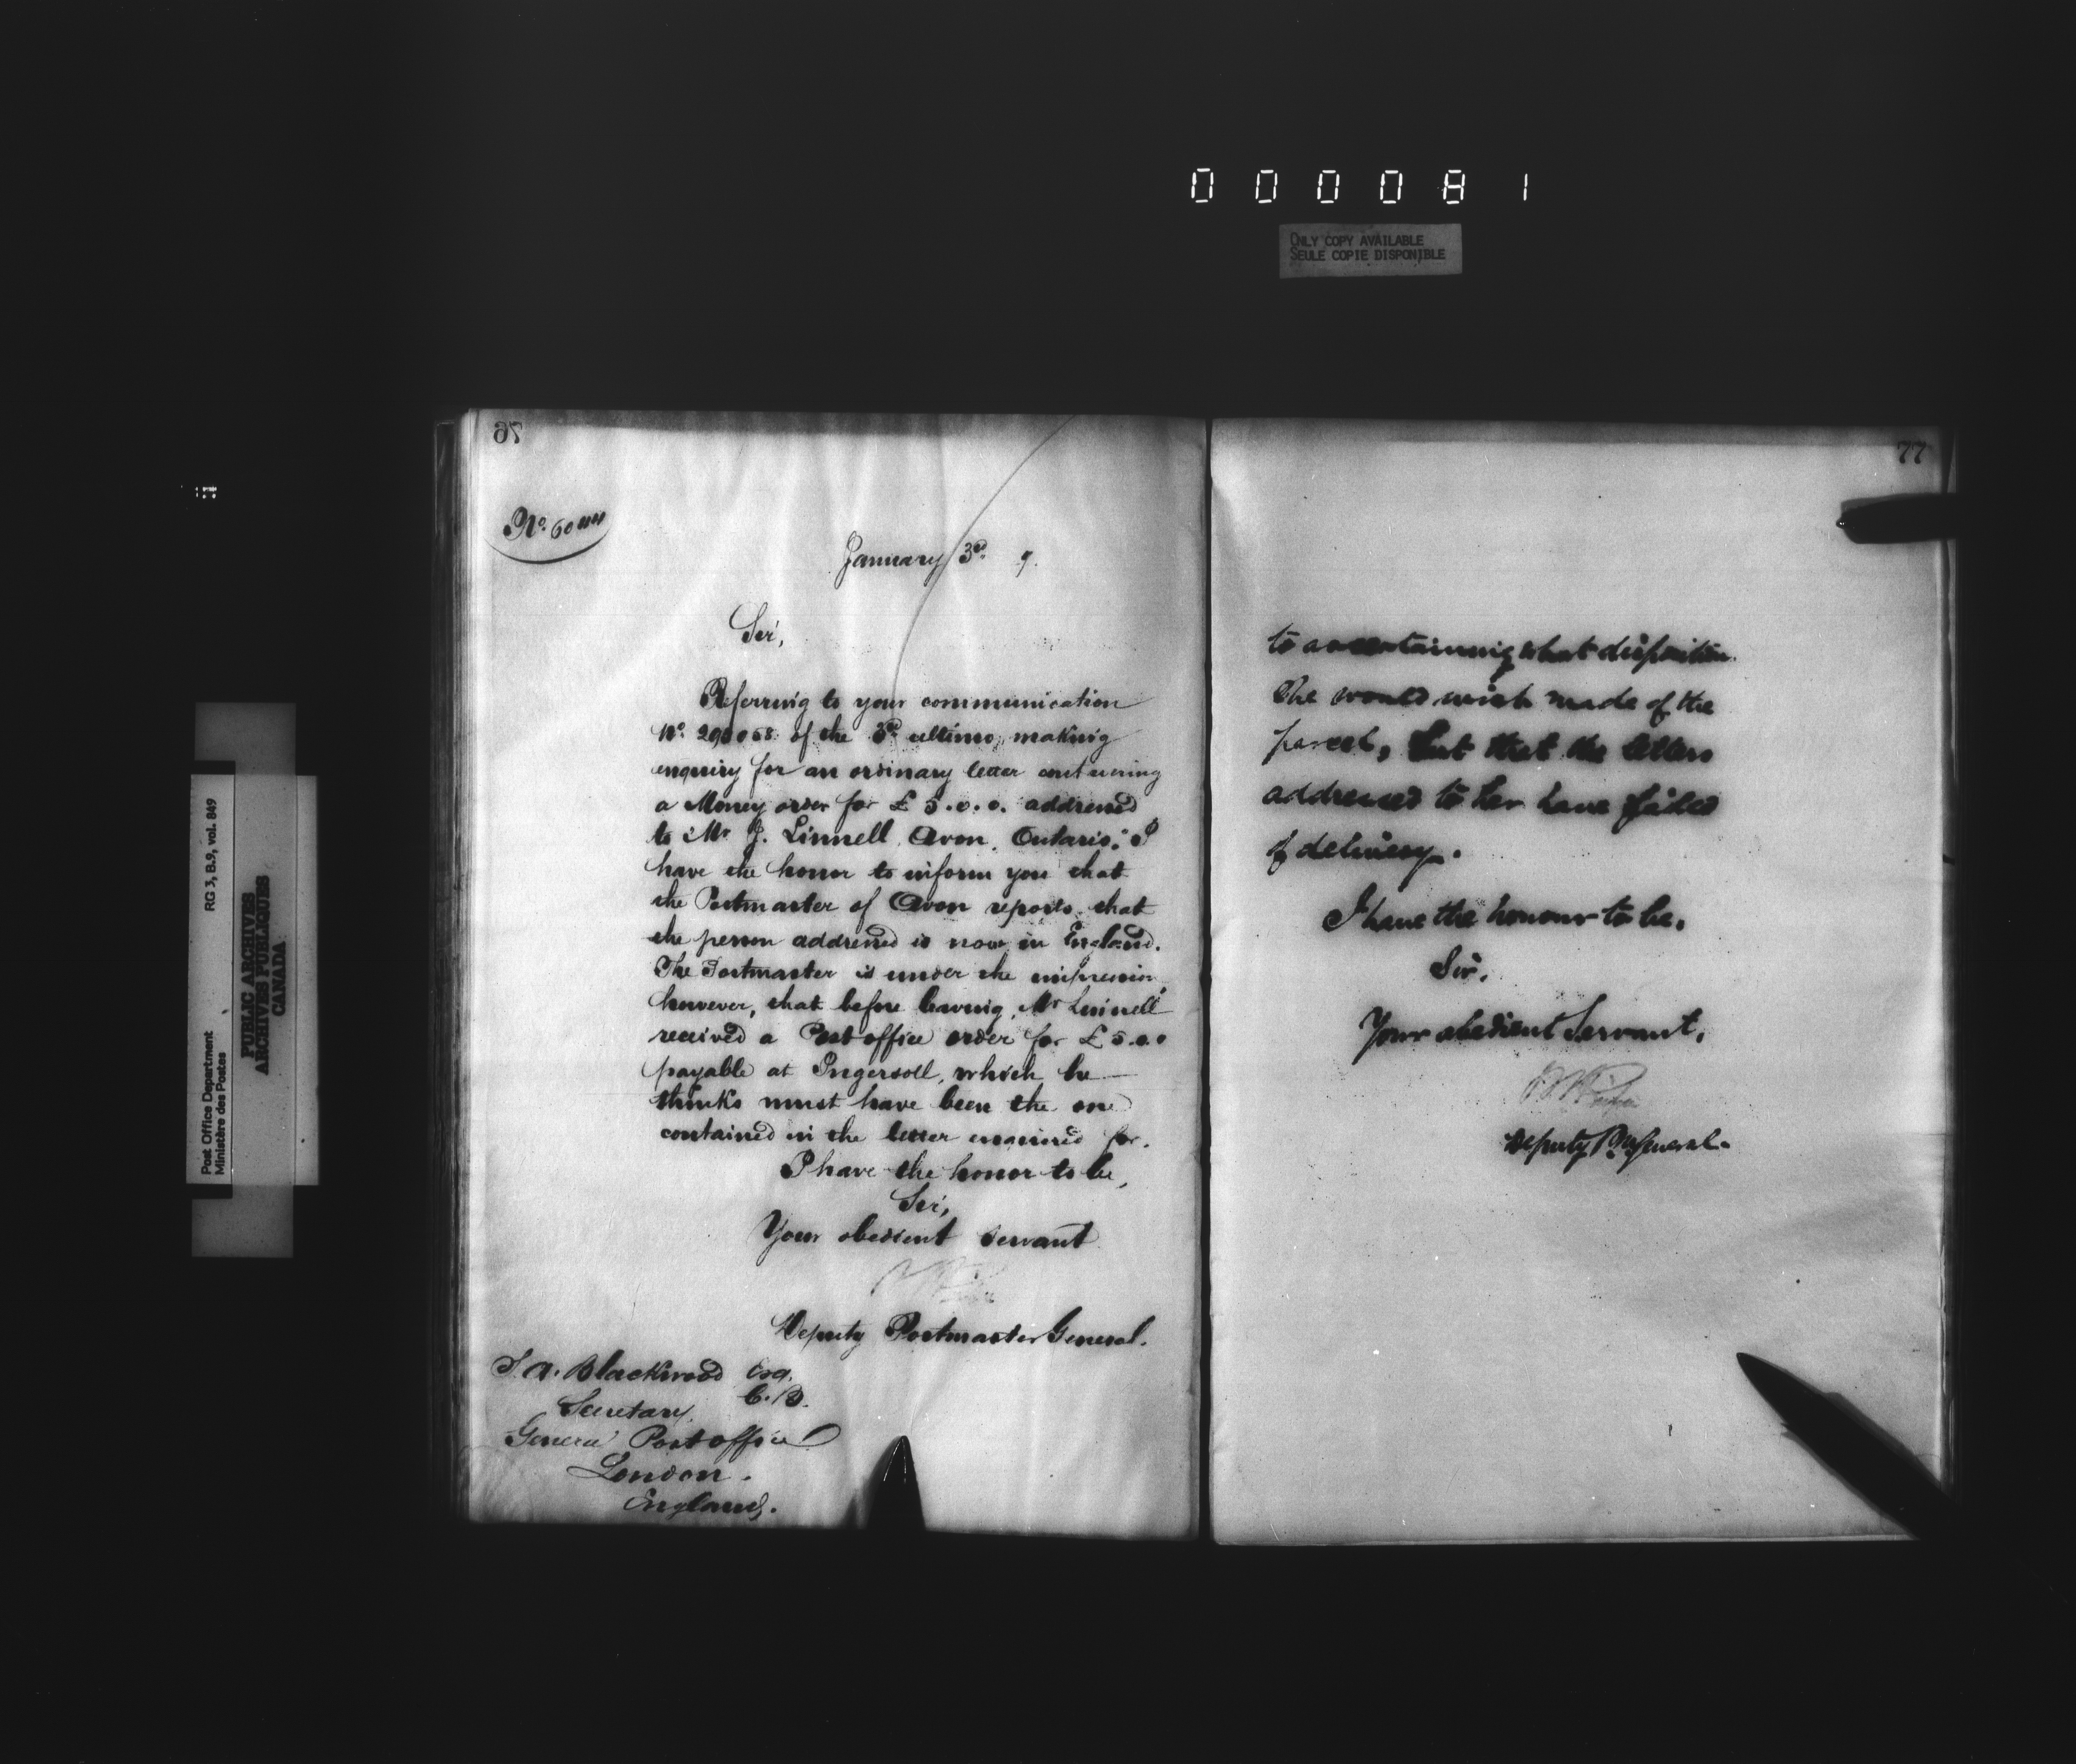 000081
ONLY COPY AVAILABLE
SEULE COPIE DISPONIBLE
RG 3, B.9, vol. 849
Post Office Department
Ministère des Postes
PUBLIC ARCHIVES
ARCHIVES PUBLIQUES
CANADA
76
No. 6044
January 3rd 9.
Sir,
Referring to your communication
No. of the 3rd ultimo, making
enquiry for an ordinary letter containing
a Money order for £ 5.0.0. addressed
to Mr J. Linnell, Avon, Ontario; I
have the honor to inform you that
the Postmaster of Avon reports that
the person addressed is now in England.
The Postmaster is under the impression,
however, that before leaving, Mr Linnell
received a Post office order for £ 5.0.0
payable at Ingersoll, which he
thinks must have been the one
contained in the letter enquired for.
I have the honor to be,
Sir,
Your obedient servant
Deputy Postmaster General.
S. A. Blackwood Esq.
C.B.
Secretary,
General Post office
London.
England.
77
to ascertaining what disposition
She would wish made of the
parcel, but that the letters
addressed to her have failed
of delivery.
I have the honour to be,
Sir,
Your obedient Servant,
Deputy P. M. General.